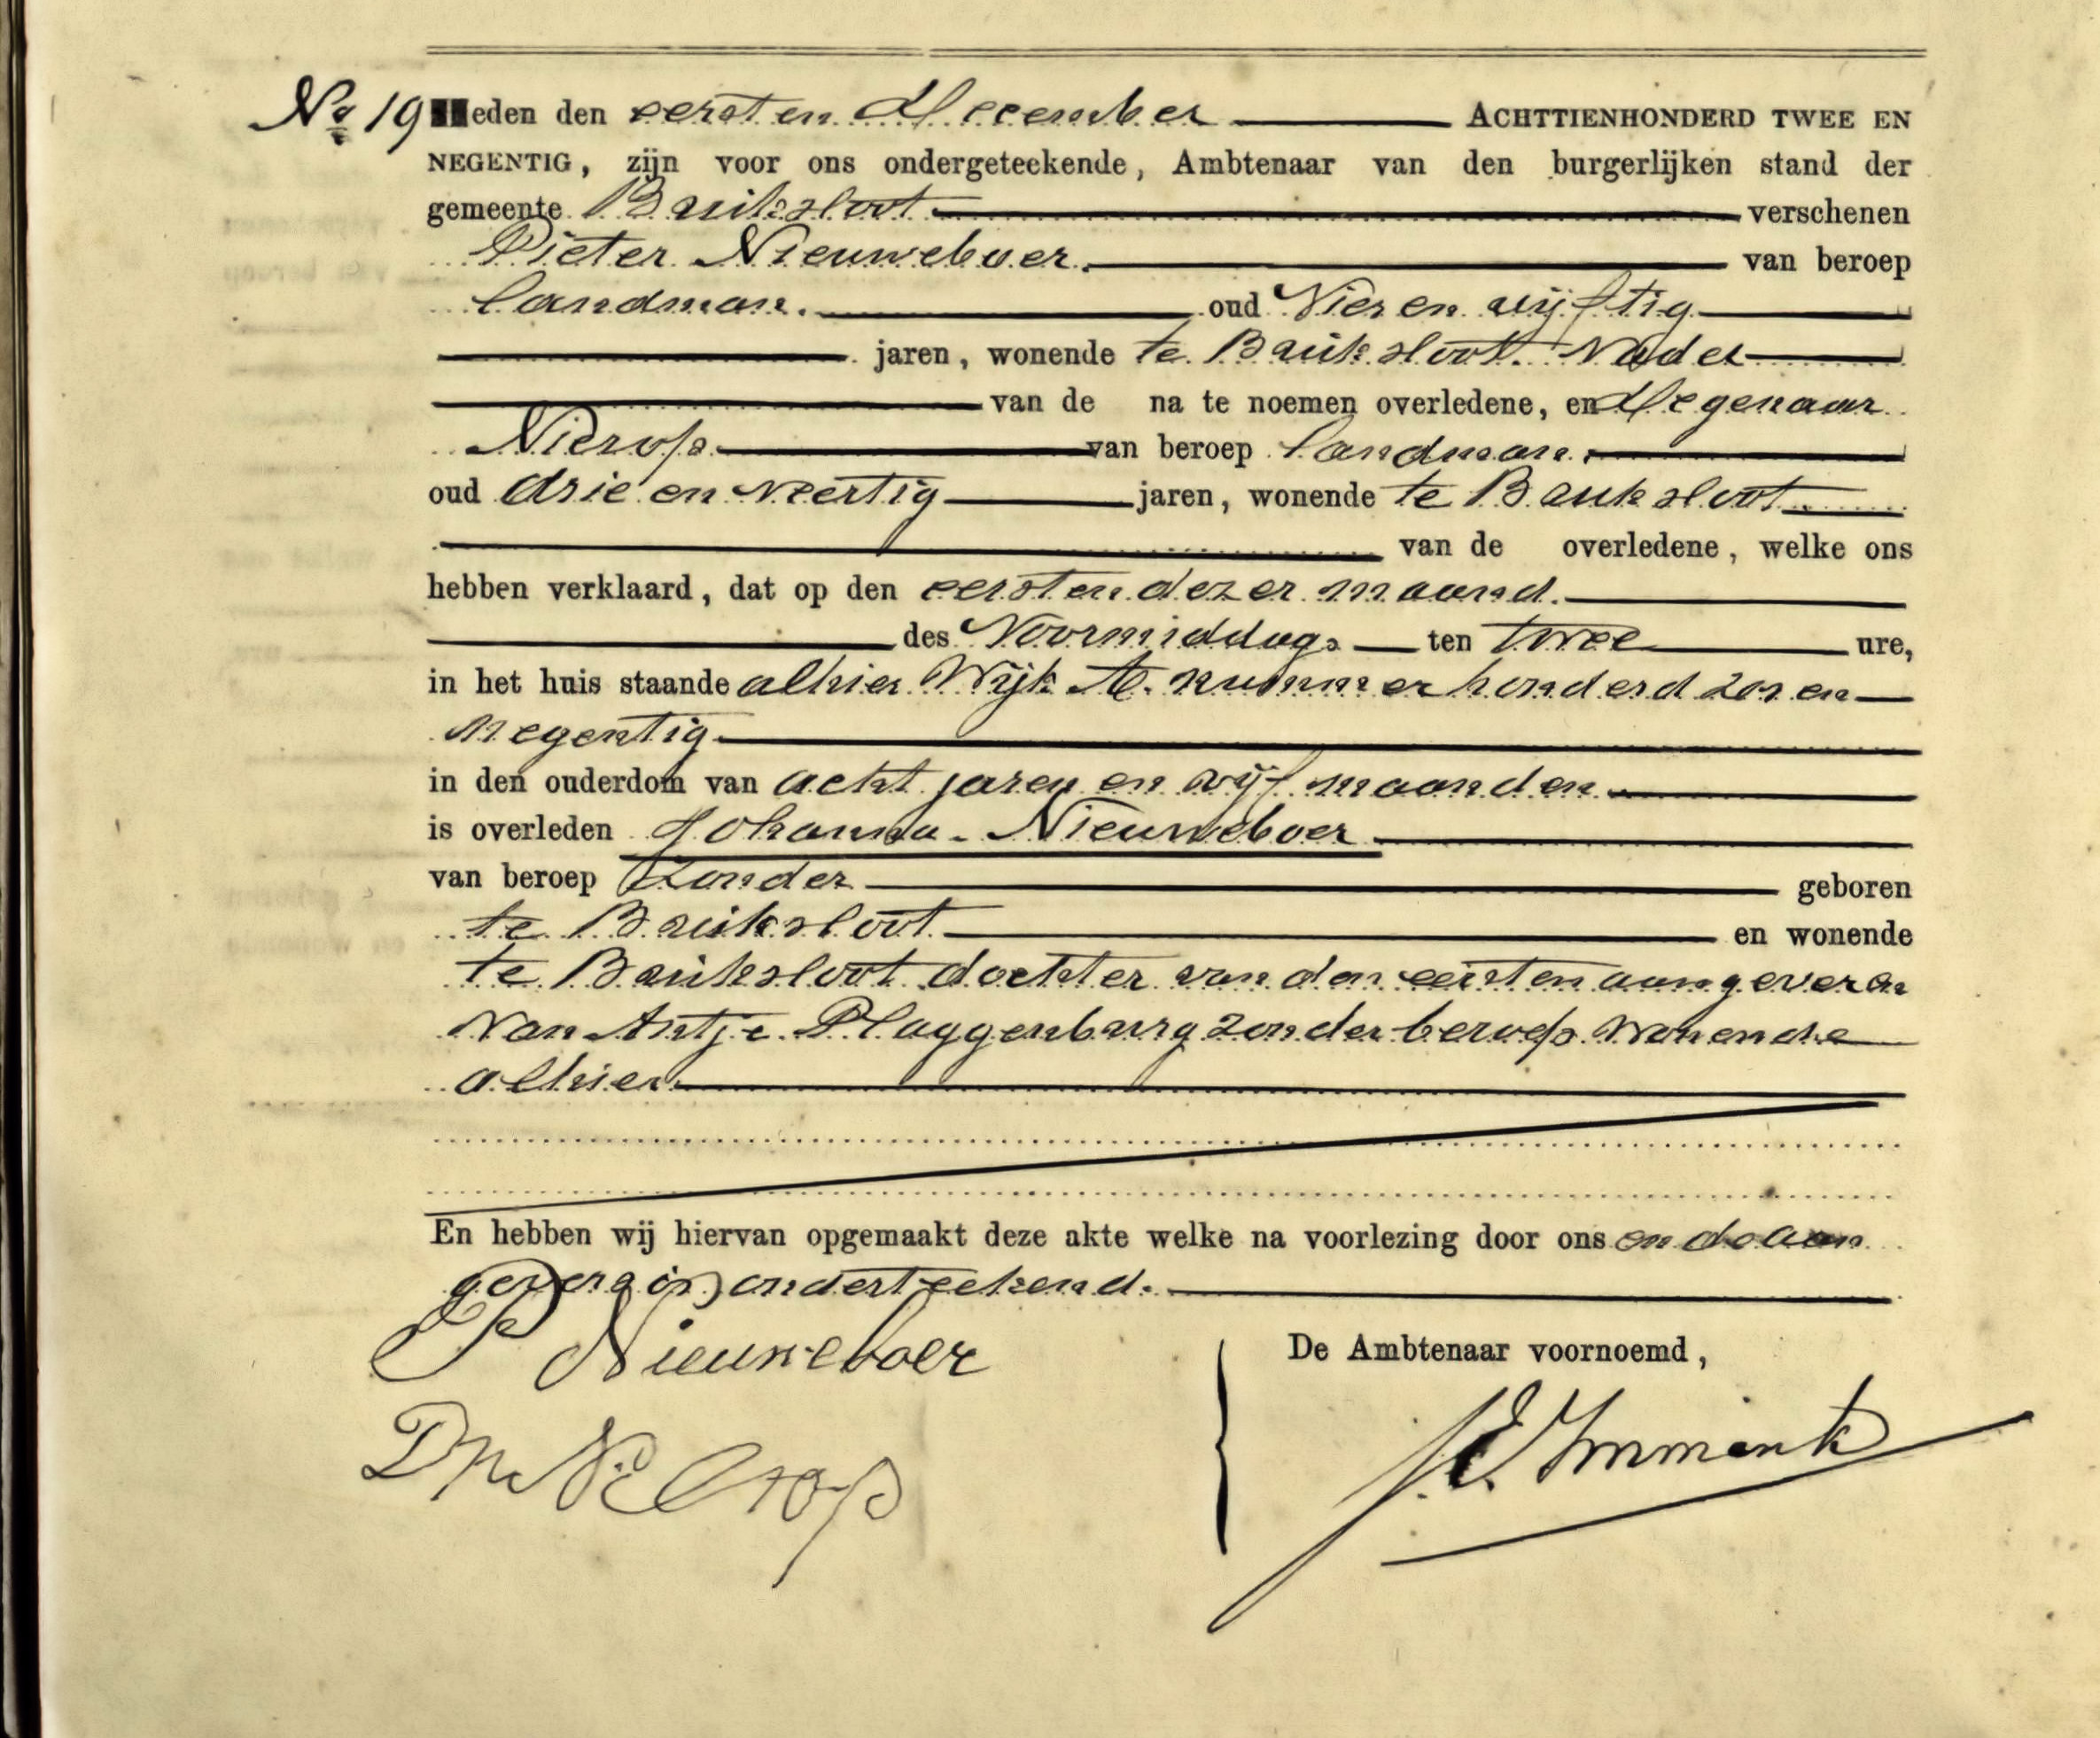 No 19 Heden den eersten December ACHTTIENHONDERD TWEE EN
NEGENTIG, zijn voor ons ondergeteekende, Ambtenaar van den burgerlijken stand der
gemeente Buiksloot verschenen
Pieter Nieuweboer van beroep
landman. oud Vier en vijftig
jaren, wonende te Buiksloot Vader
van de na te noemen overledene, en Degenaar
Nierop van beroep landman.
oud drie en veertig jaren, wonende te Buiksloot
van de overledene, welke ons
hebben verklaard, dat op den eersten dezer maand.
des Voormiddags ten twee ure,
in het huis staande alhier Wijk A. nummer honderd zes en
negentig
in den ouderdom van acht jaren en vijf maanden
is overleden Johanna Nieuweboer
van beroep Zonder geboren
te Buiksloot en wonende
te Buiksloot dochter van den eersten aangever en
Van Antje Plaggenburg zonder beroep Wonende
alhier
En hebben wij hiervan opgemaakt deze akte welke na voorlezing door ons en de aan
gevers is onderteekend.
P Nieuweboer
De Ambtenaar voornoemd,
Dn Nierop
J. E. Immink